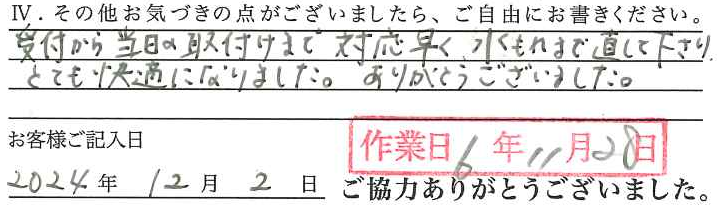 Ⅳ．その他お気づきの点がございましたら、ご自由にお書きください。
受付から当日の取付けまで対応早く、水もれまで直して下さり
とても快適になりました。ありがとうございました。
お客様ご記入日
作業日6年11月28日
2024年12月2日 ご協力ありがとうございました。